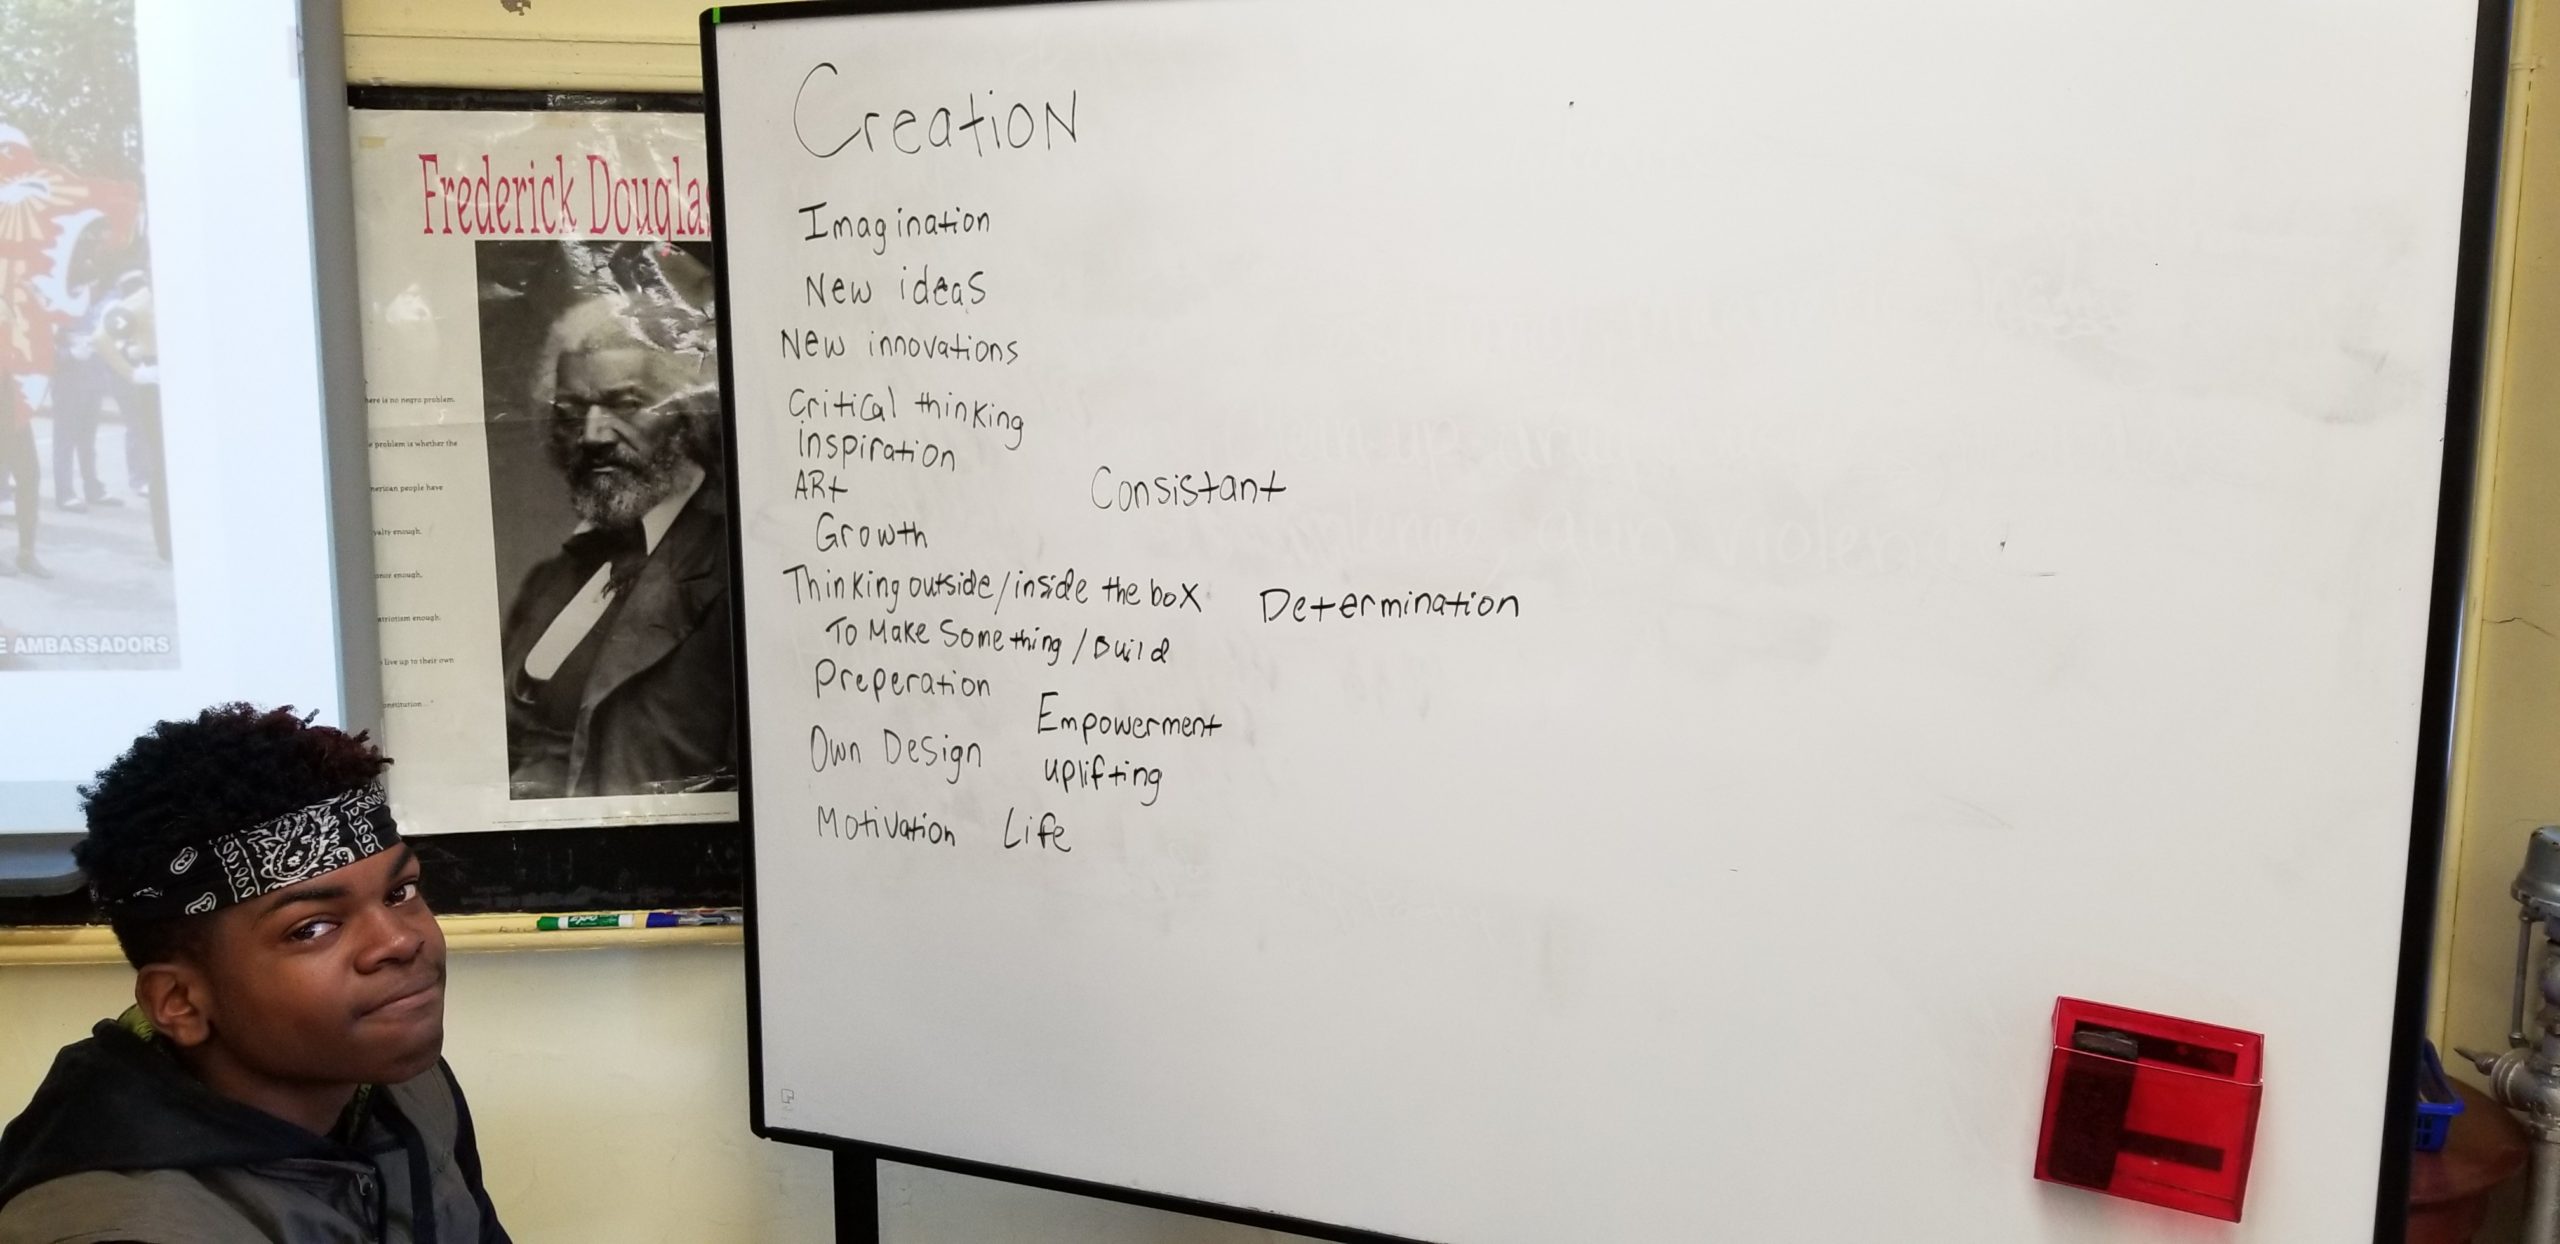 AMBASSADORS
Frederick Douglas
here is no negro problem.
problem is whether the
merican people have
yalty enough,
onor enough,
atriotism enough,
live up to their own
onstitution..."
Creation
Imagination
New ideas
New innovations
Critical thinking
inspiration
ARt
Consistant
Growth
Thinking outside/inside the box
Determination
To Make Something/Build
Preperation
Empowerment
Own Design
uplifting
Motivation Life